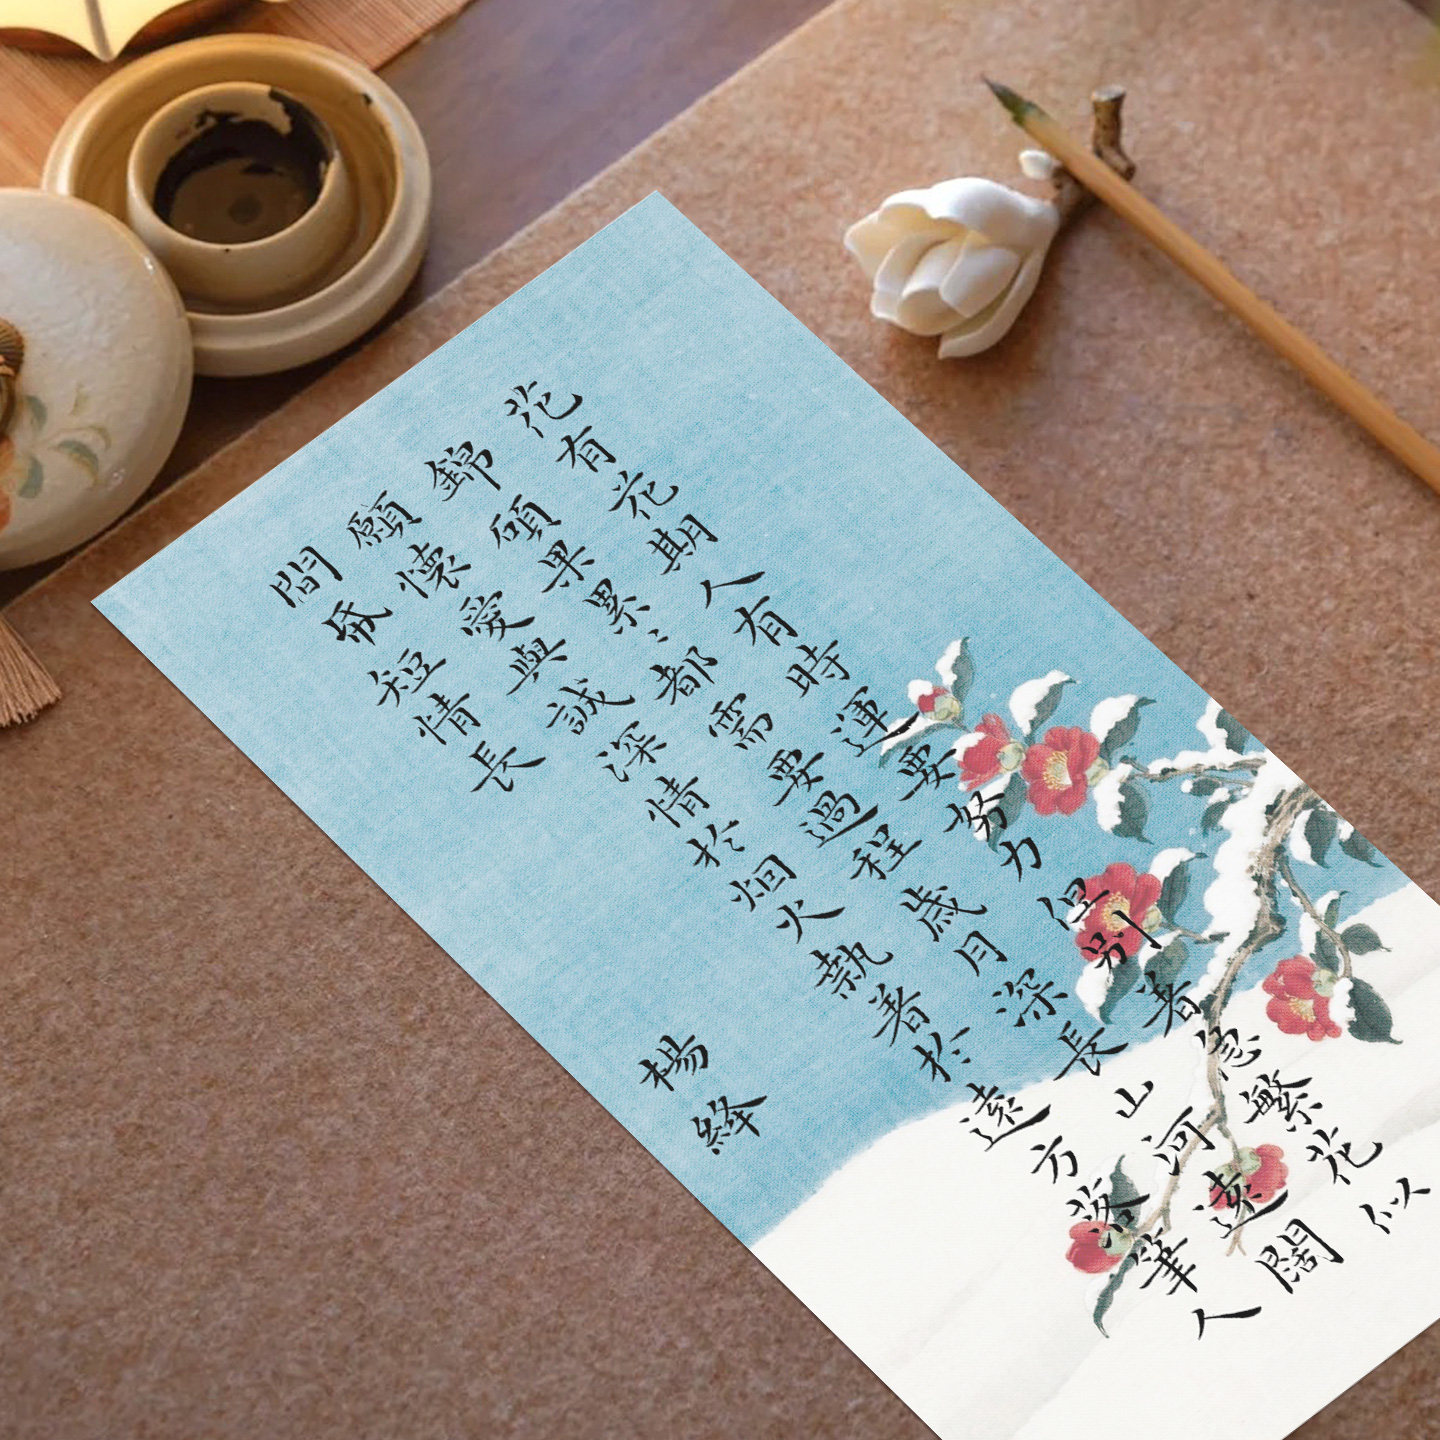 花有花期人有時運要努力但別着急繁花似
錦碩果累〻都需要過程歲月深長山河遠闊
願懷愛與誠深情於烟火執着於遠方落筆人
間帋短情長
楊絳